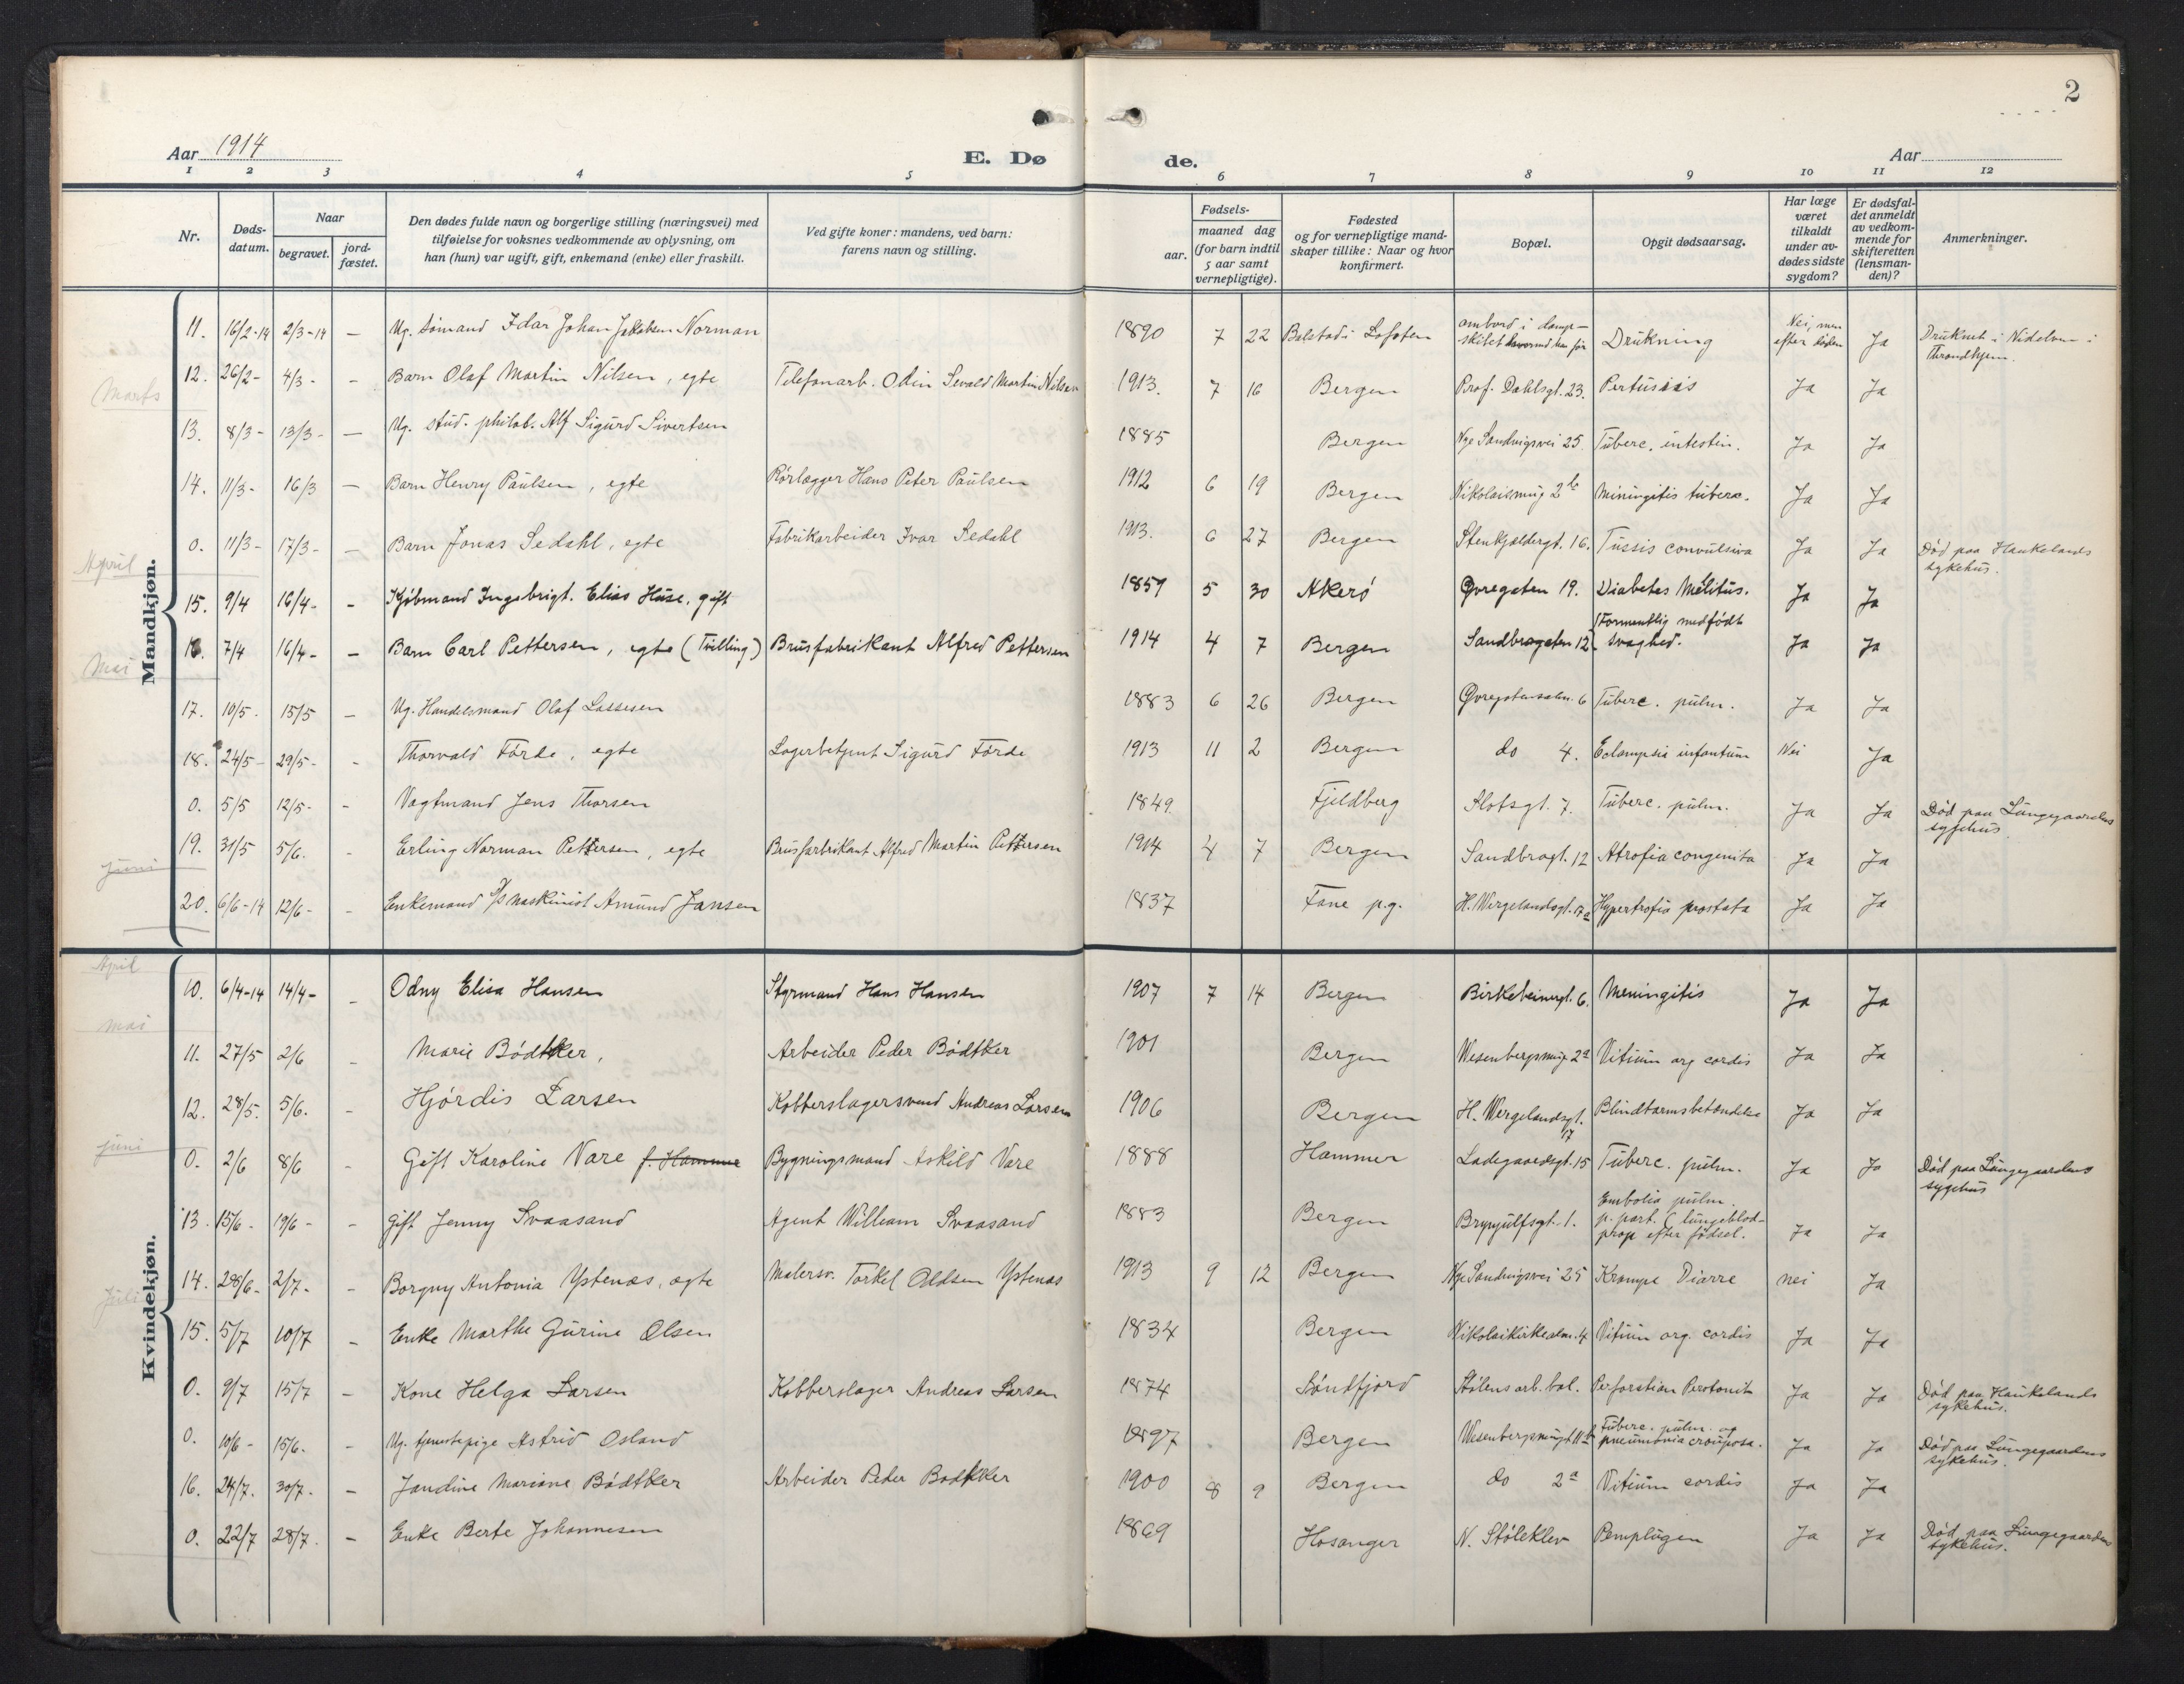 2
Aar 1914
E. Dø
de.
Aar
1 2 3 4 5 6 7 8 9 10 11 12
Nr.
Døds-
datum.
Naar
begravet.
jord-
fæstet.
Den dødes fulde navn og borgerlige stilling (næringsvei) med
tilføielse for voksnes vedkommende av oplysning, om
han (hun) var ugift, gift, enkemand (enke) eller fraskilt.
Ved gifte koner: mandens, ved barn:
farens navn og stilling.
Fødsels-
aar.
maaned dag
(for barn indtil
5 aar samt
vernepligtige).
Fødested
og for vernepligtige mand-
skaper tillike: Naar og hvor
konfirmert.
Bopæl.
Opgit dødsaarsag.
Har læge
været
tilkaldt
under av-
dødes sidste
sygdom?
Er dødsfal-
det anmeldt
av vedkom-
mende for
skifteretten
(lensman-
den)?
Anmerkninger.
Mandkjøn.
11. 16/2-14 2/3-14 — Ug. sømand Idar Johan Jakobsen Norman 1890 7 22 Balstad i Lofoten ombord i damp- Drukning Nei, men efter døden Ja Druknet i Nidelven i Throndhjem.
12. 26/2- 4/3- - Barn Olaf Martin Nilsen, egte Telefonarb. Odin Sevald Martin Nilsen 1913. 7 16 Bergen Prof. Dahlsgt. 23. Pertussis Ja Ja
Marts
13. 8/3- 13/3- — Ug. stud. philol. Alf Sigurd Sivertsen 1885 Bergen Nye Sandvigsvei 25. Tuberc. intestin. Ja Ja
14. 11/3- 16/3 — Barn Henry Paulsen, egte Rørlægger Hans Peter Paulsen 1912 6 19 Bergen Nikolaismug 2b Miningitis tuberc. Ja Ja
0. 11/3- 17/3- — Barn Jonas Sedahl, egte Fabrikarbeider Ivar Sedahl 1913. 6 27 Bergen Stenkjeldergt. 16. Tussis convulsiva Ja Ja Død paa Haukelands sykehus.
April
15. 9/4 16/4- - Kjøbmand Ingebrigt. Elias Huse, gift 1859 5 30 Akerø Øvregaten 19. Diabetes Melitus. Ja Ja
16. 7/4 16/4- - Barn Carl Pettersen, egte (Tvilling) Brusfabrikant Alfred Pettersen 1914 4 7 Bergen Sandbrogaten 12 Formentlig medfødt svaghed. Ja Ja
Mai
17. 10/5. 15/5 — Ug. Handelsmand Olaf Lassesen 1883 6 26 Bergen Øvregatensalm. 6 Tuberc. pulm. Ja Ja
18. 24/5- 29/5- - Thorvald Førde, egte Lagerbetjent Sigurd Førde 1913 11 2 Bergen do 4. Eclampsia infantum Nei Ja
0. 5/5 12/5- - Vagtmand Jens Thorsen 1849. Fjeldberg Slotsgt. 7. Tuberc. pulm. Ja Ja Død paa Lungegaardens sygehus
19. 31/5 5/6. - Erling Norman Pettersen, egte Brusfarbrikant Alfred Martin Pettersen 1914 4 7 Bergen Sandbrogt. 12 Atrofia congenita Ja Ja
Juni
20. 6/6-14 12/6- - Enkemand d/s maskinist Amund Jansen 1837 Fane p.g. H. Wergelandsgt. 17a Hypertrofia prostata Ja Ja
Kvindekjøn.
April
10. 6/4-14 14/4- - Odny Elisa Hansen Styrmand Hans Hansen 1907 7 14 Bergen Birkebeinergt. 6. Meningitis Ja Ja
Mai
11. 27/5 2/6 - Marie Bødtker, Arbeider Peder Bødtker 1901 Bergen Wesenbergsmug 2a Vitium org cordis Ja Ja
12. 28/5. 5/6. - Hjørdis Larsen Kobberslagersvend Andreas Larsen 1906 Bergen H. Wergelandsgt. 17 Blindtarmsbetændelse Ja Ja
Juni
0. 2/6 8/6 - Gift Karoline Vare f. Hammer Bygningsmand Askild Vare 1888 Hammer Ladegaardsgt. 15 Tuberc. pulm. Ja Ja Død paa Lungegaardens sygehus
13. 15/6- 19/6- - Gift Jenny Svaasand Agent William Svaasand 1883 Bergen Brynjulfsgt. 1. Embolia pulm. p. part. (lungeblod- prop efter fødsel. Ja Ja
14. 28/6- 2/7- - Borgny Antonia Ystenæs, ægte Malersv. Torkel Oldsen Ystenæs 1913 9 12 Bergen Nye Sandvigsvei 25 Krampe Diarre nei Ja
Juli
15. 5/7 10/7 - Enke Marthe Gurine Olsen 1834 Bergen Nikolaikirkealm. 4 Vitium org. cordis Ja Ja
0. 9/7 15/7 - Kone Helga Larsen Kobberslager Andreas Larsen 1874 Søndfjord Stølens arb. bol. Perforation Peretonit Ja Ja Død paa Haukelands sykehus.
0. 10/6- 15/6. - Ug. tjenestepige Astrid Osland 1897 Bergen Wesenbergsmugt 11b Tuberc. pulm. og pneumonia crouposa. Ja Ja Død paa Lungegaardens sykehus.
16. 24/7. 30/7- - Jandine Mariane Bødtker Arbeider Peder Bødtker 1900 8 9 Bergen do 2a Vitium cordis Ja Ja
0. 22/7 28/7. - Enke Berte Johannesen 1869 Hosanger N. Støleklev Ja Ja Død paa Lungegaardens sykehus.